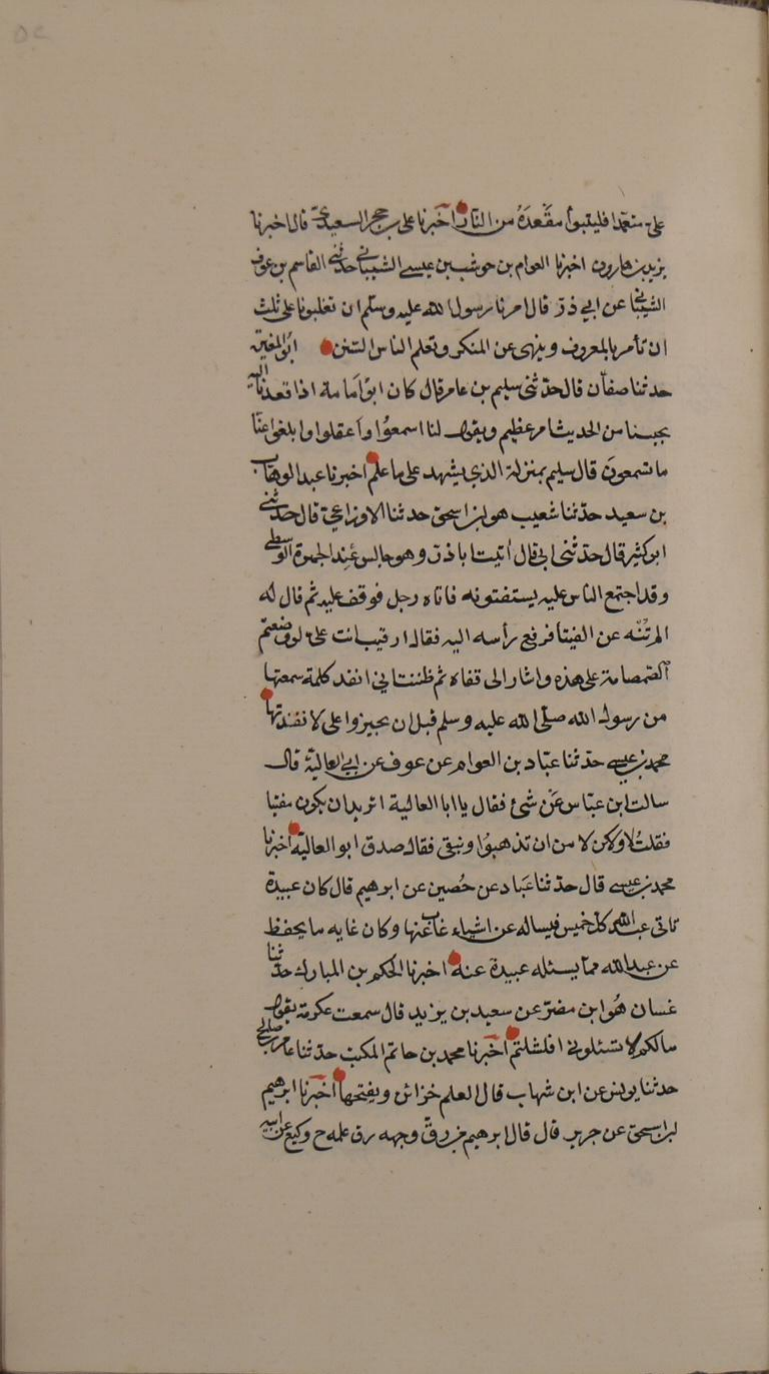 علي متعمدا فليتبوأ مقعده من النار اخبرنا علي بن حجر السعدي قال اخبرنا
يزيد بن هارون اخبرنا العوام بن حوشب بن عيسى الشيباني حدثني القاسم بن عوف
الشيباني عن ابي ذر قال امرنا رسول الله عليه وسلم ان تغلبونا على ثلث
ان نأمر بالمعروف وينهى عن المنكر ونعلم الناس السنن ابو المغيرة
حدثنا صفان قال حدثني سليم بن عامر قال كان ابو امامة اذا قعدنا اليه
يجيبنا من الحديث امر عظيم ويقول لنا اسمعوا واعقلوا وابلغوا عنا
ما تسمعون قال سليم بمنزلة الذي يشهد على ما علم اخبرنا عبد الوهاب
بن سعيد حدثنا شعيب هو ابن اسحق حدثنا الاوزاعي قال حدثني
ابن كثير قال حدثني ابي قال اتيت ابا ذر وهو جالس عند الجمرة الوسطى
وقد اجتمع الناس عليه يستفتونه فاتاه رجل فوقف عليه ثم قال له
الم تنه عن الفيتا فرفع رأسه اليه فقال ارقيب انت علي لو وضعتم
الصمصامة على هذه واشار الى قفاه ثم ظننت اني انفد كلمة سمعتها
من رسول الله صلى الله عليه وسلم قبل ان يجيزوا علي لانفذتها
محمد بن عيسى حدثنا عباد بن العوام عن عوف عن ابي العالية قال
سالت ابن عباس عن شئ فقال يا ابا العالية اتريد ان يكون مفتيا
فقلت لا ولاكن لا من ان تذهبوا ونبقى فقال صدق ابو العالية اخبرنا
محمد بن عيسى قال حدثنا عباد عن حصين عن ابرهيم قال كان عبيدة
تاتي عبد الله كل خميس فيساله عن اشياء غاب عنها وكان غايه ما يحفظ
عن عبد الله مما يسئله عبيدة عنه اخبرنا الحكم بن المبارك حدثنا
غسان هو ابن مضر عن سعيد بن يزيد قال سمعت عكرمة يقول
مالكم لا تسئلوني افلشلتم اخبرنا محمد بن حاتم المكتب حدثنا عامر بن صالح
حدثنا يونس عن ابن شهاب قال العلم خزائن ويفتحها اخبرنا ابرهيم
ابن اسحق عن جرير قال قال ابرهيم من رق وجهه رق علمه ح وكيع عن ابيه